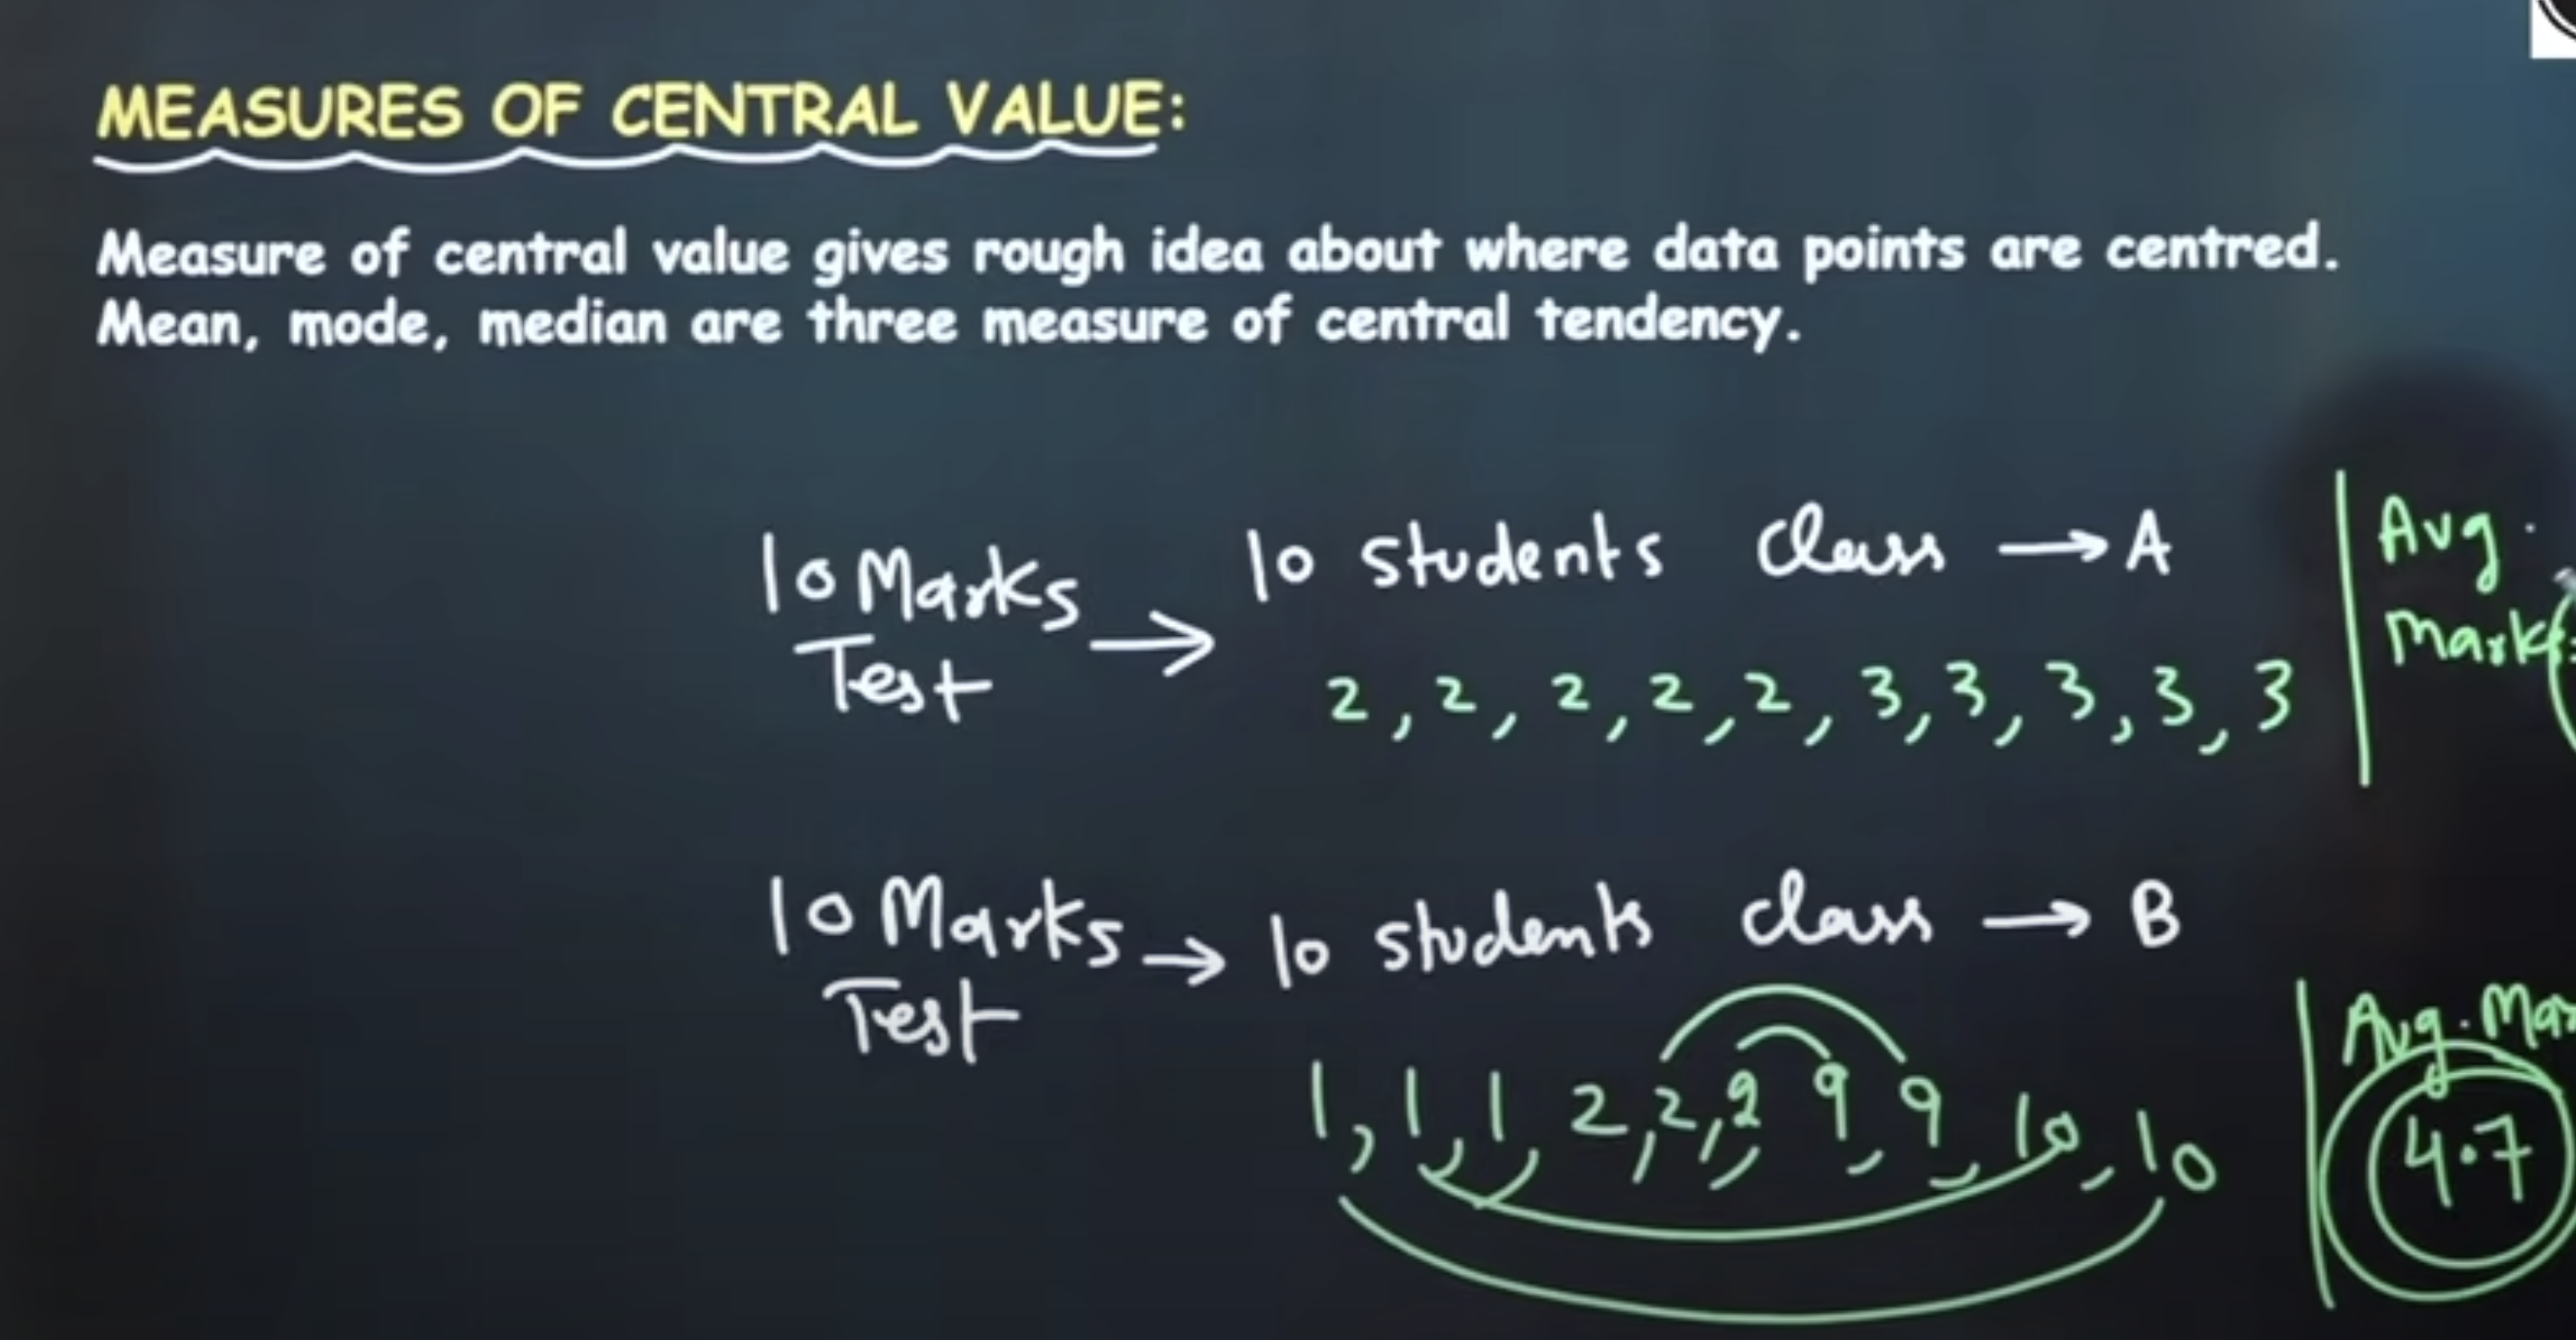 MEASURES OF CENTRAL VALUE:
Measure of central value gives rough idea about where data points are centred.
Mean, mode, median are three measure of central tendency.
10 Marks
Test
10 students class → A
2, 2, 2, 2, 2, 3, 3, 3, 3, 3
Avg.
Marks
10 Marks
Test
10 students class → B
1, 1, 1, 2, 2, 2, 9, 9, 10, 10
Avg. Mar
4.7